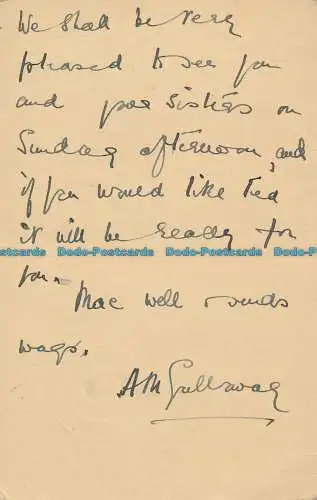 We shall be very
pleased to see you
and your sisters on
Sunday afternoon, and
if you would like Tea
it will be ready for
you.
Mac well &
wags.
AM Gallaway
Dodo-Postcards Dodo-Postcards Dodo-Postcards